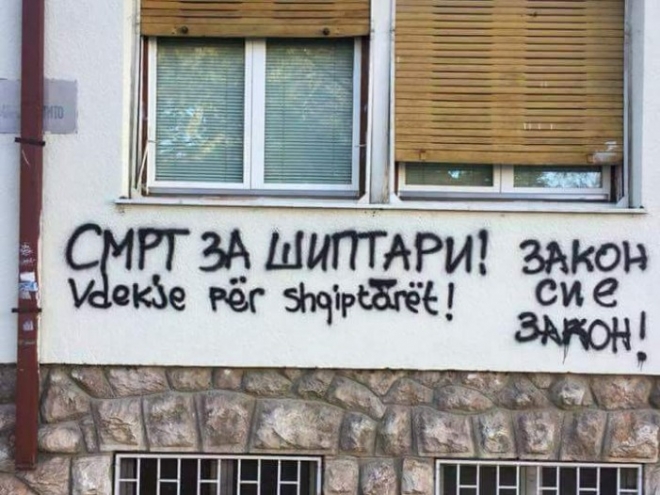 СМРТ ЗА ШИПТАРИ!
Vdekje për shqiptarët!
ЗАКОН
СИ Е
ЗАКОН!